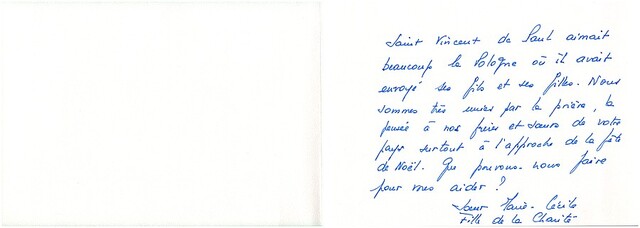 Saint Vincent de Paul aimait
beaucoup la Pologne où il avait
envoyé ses fils et ses filles. Nous
sommes très unies par la prière, la
pensée à nos frères et sœurs de votre
pays surtout à l'approche de la fête
de Noël. Que pouvons-nous faire
pour vous aider ?
Sœur Marie-Cécile
Fille de la Charité